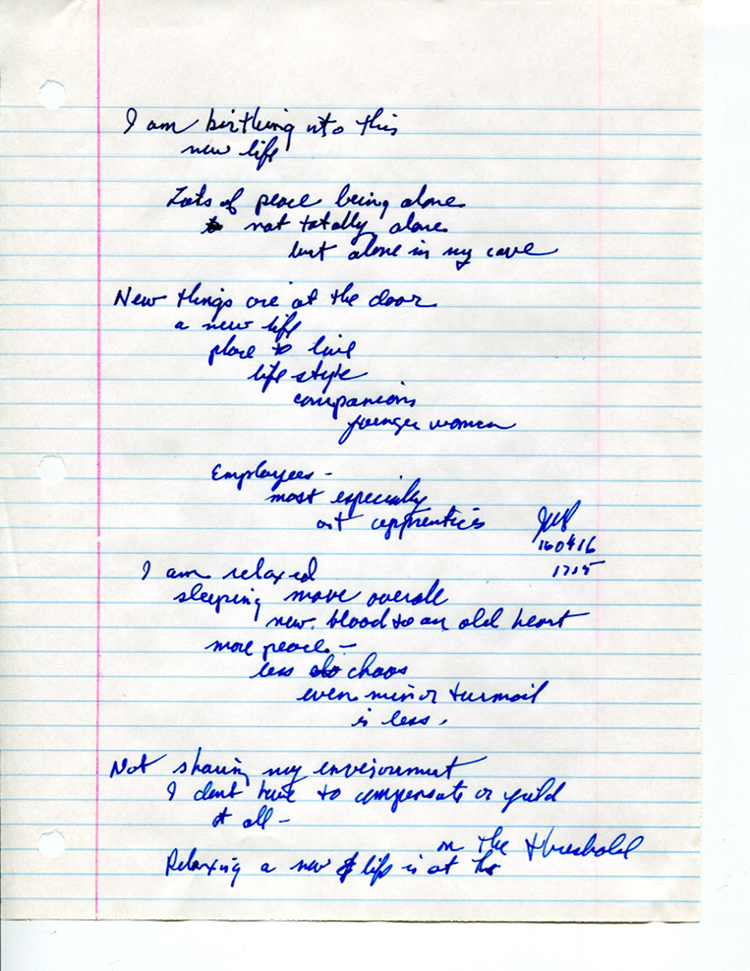 I am birthing into this
new life
Lots of peace being alone
not totally alone
but alone in my cave
New things are at the door
a new life
place to live
life style
companions
younger women
Employees -
most especially
art apprentices
160416
1715
I am relaxed
sleeping more overall
new blood to an old heart
more peace -
less chaos
even minor turmoil
is less.
Not sharing my environment
I dont have to compensate or yield
at all -
on the threshold
Relaxing a new life is at the